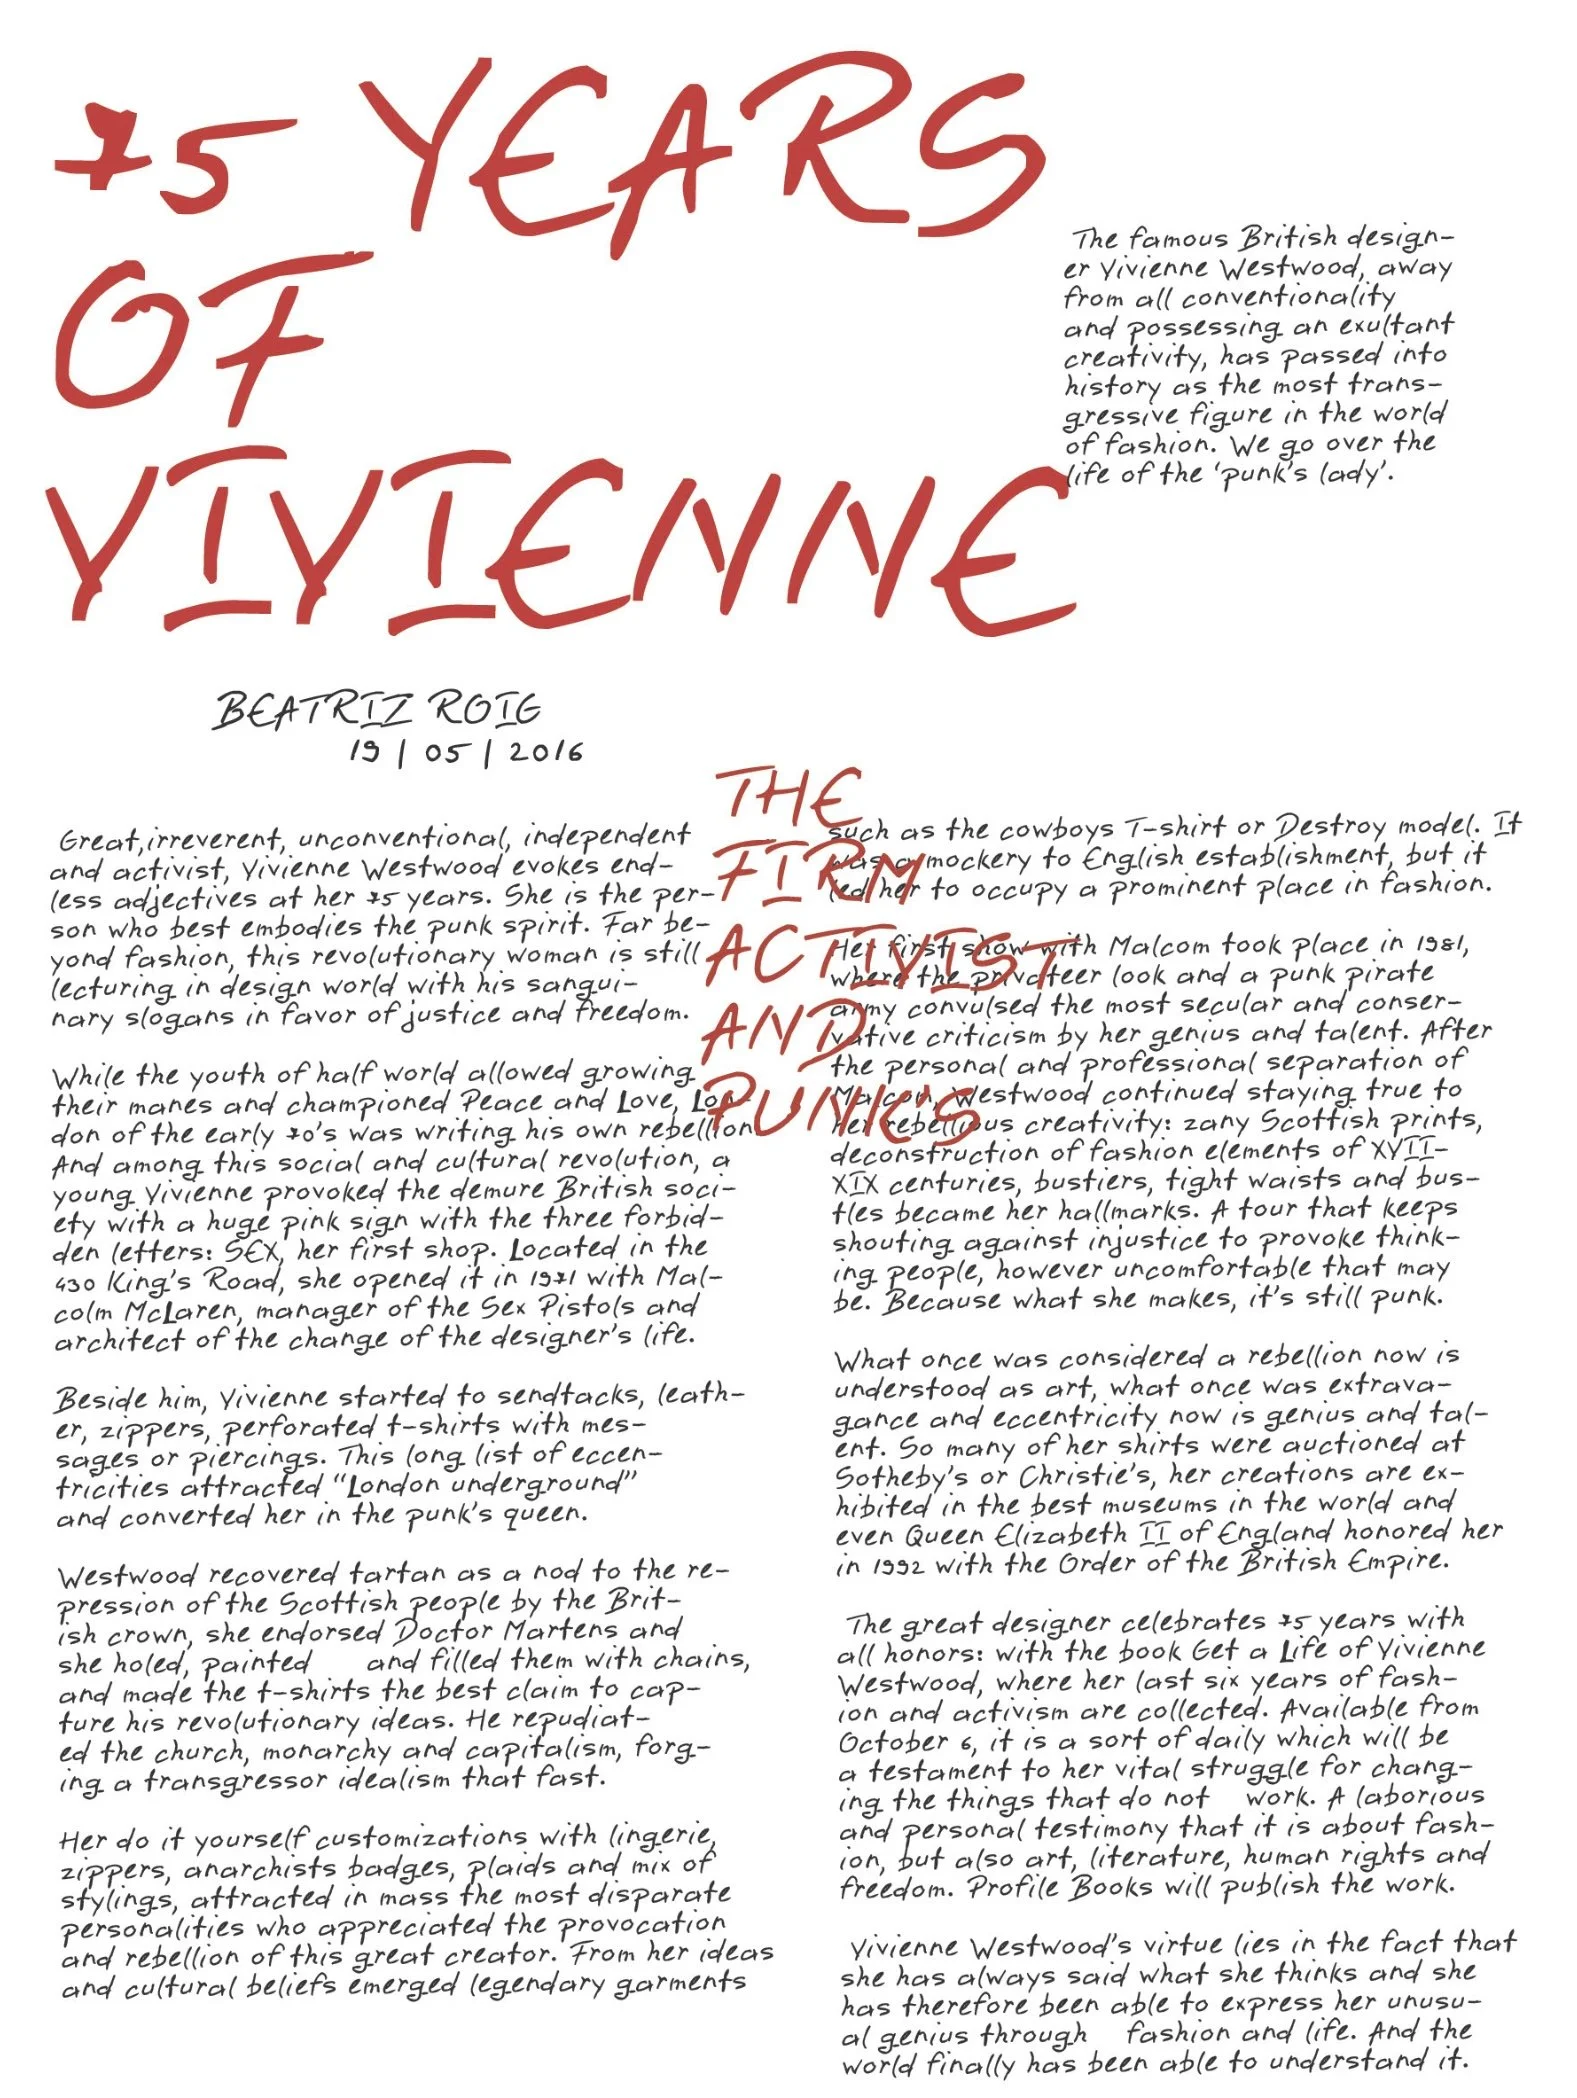 75 YEARS
OF
VIVIENNE
The famous British design-
er Vivienne Westwood, away
from all conventionality
and possessing an exultant
creativity, has passed into
history as the most trans-
gressive figure in the world
of fashion. We go over the
life of the 'punk's lady'.
BEATRIZ ROIG
19 | 05 | 2016
THE
FIRM
ACTIVIST
AND
PUNK'S
Great,irreverent, unconventional, independent
and activist, Vivienne Westwood evokes end-
less adjectives at her 75 years. She is the per-
son who best embodies the punk spirit. Far be-
yond fashion, this revolutionary woman is still
lecturing in design world with his sangui-
nary slogans in favor of justice and freedom.
While the youth of half world allowed growing
their manes and championed Peace and Love, Lon-
don of the early 70's was writing his own rebellion.
And among this social and cultural revolution, a
young Vivienne provoked the demure British soci-
ety with a huge pink sign with the three forbid-
den letters: SEX, her first shop. Located in the
430 King's Road, she opened it in 1971 with Mal-
colm McLaren, manager of the Sex Pistols and
architect of the change of the designer's life.
Beside him, Vivienne started to sendtacks, leath-
er, zippers, perforated t-shirts with mes-
sages or piercings. This long list of eccen-
tricities attracted "London underground"
and converted her in the punk's queen.
Westwood recovered tartan as a nod to the re-
pression of the Scottish people by the Brit-
ish crown, she endorsed Doctor Martens and
she holed, painted and filled them with chains,
and made the t-shirts the best claim to cap-
ture his revolutionary ideas. He repudiat-
ed the church, monarchy and capitalism, forg-
ing a transgressor idealism that fast.
Her do it yourself customizations with lingerie,
zippers, anarchists badges, plaids and mix of
stylings, attracted in mass the most disparate
personalities who appreciated the provocation
and rebellion of this great creator. From her ideas
and cultural beliefs emerged legendary garments
such as the cowboys T-shirt or Destroy model. It
was a mockery to English establishment, but it
led her to occupy a prominent place in fashion.
Her first show with Malcom took place in 1981,
where the privateer look and a punk pirate
army convulsed the most secular and conser-
vative criticism by her genius and talent. After
the personal and professional separation of
Malcom, Westwood continued staying true to
her rebellious creativity: zany Scottish prints,
deconstruction of fashion elements of XVII-
XIX centuries, bustiers, tight waists and bus-
tles became her hallmarks. A tour that keeps
shouting against injustice to provoke think-
ing people, however uncomfortable that may
be. Because what she makes, it's still punk.
What once was considered a rebellion now is
understood as art, what once was extrava-
gance and eccentricity now is genius and tal-
ent. So many of her shirts were auctioned at
Sotheby's or Christie's, her creations are ex-
hibited in the best museums in the world and
even Queen Elizabeth II of England honored her
in 1992 with the Order of the British Empire.
The great designer celebrates 75 years with
all honors: with the book Get a Life of Vivienne
Westwood, where her last six years of fash-
ion and activism are collected. Available from
October 6, it is a sort of daily which will be
a testament to her vital struggle for chang-
ing the things that do not work. A laborious
and personal testimony that it is about fash-
ion, but also art, literature, human rights and
freedom. Profile Books will publish the work.
Vivienne Westwood's virtue lies in the fact that
she has always said what she thinks and she
has therefore been able to express her unusu-
al genius through fashion and life. And the
world finally has been able to understand it.